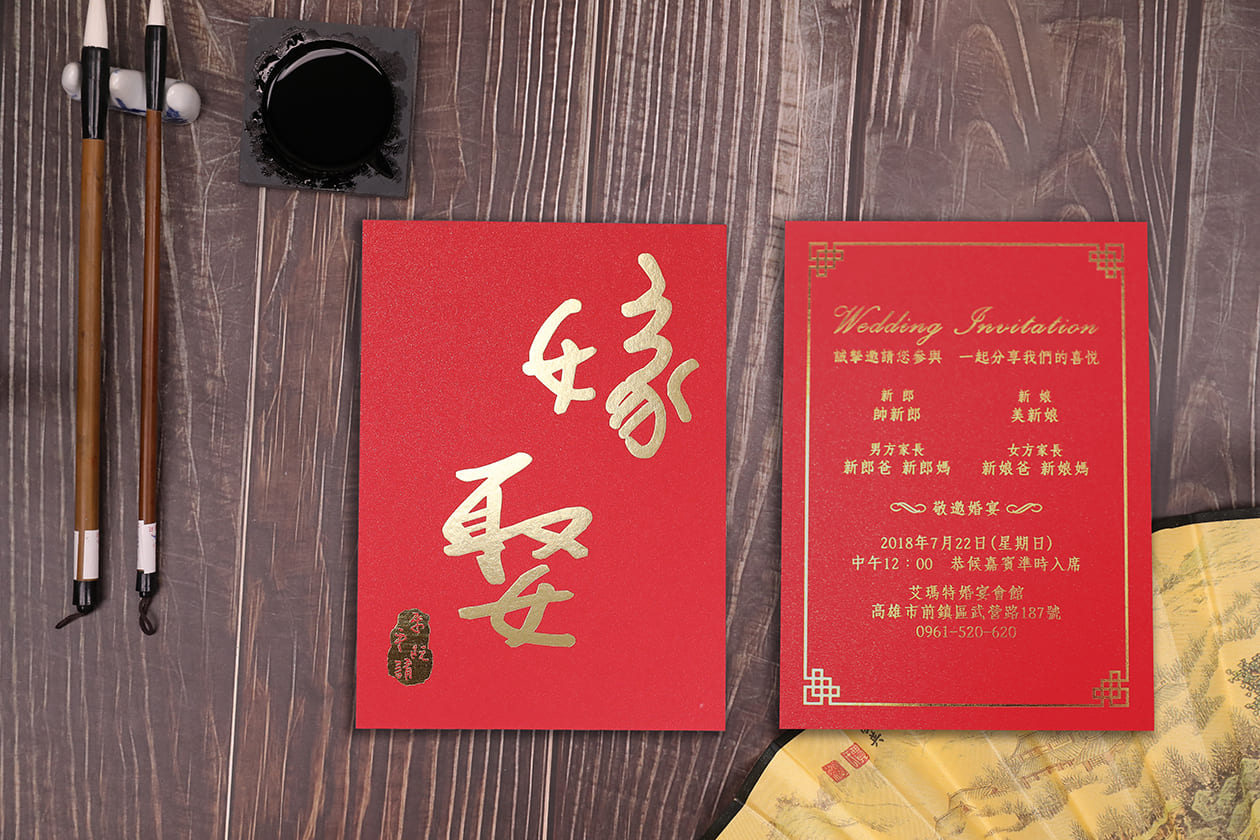 嫁
娶
Wedding Invitation
誠摯邀請您參與　一起分享我們的喜悅
新 郎　新 娘
帥新郎　美新娘
男方家長　女方家長
新郎爸 新郎媽　新娘爸 新娘媽
敬邀婚宴
2018年7月22日(星期日)
中午12：00　恭候嘉賓準時入席
艾瑪特婚宴會館
高雄市前鎮區武營路187號
0961-520-620